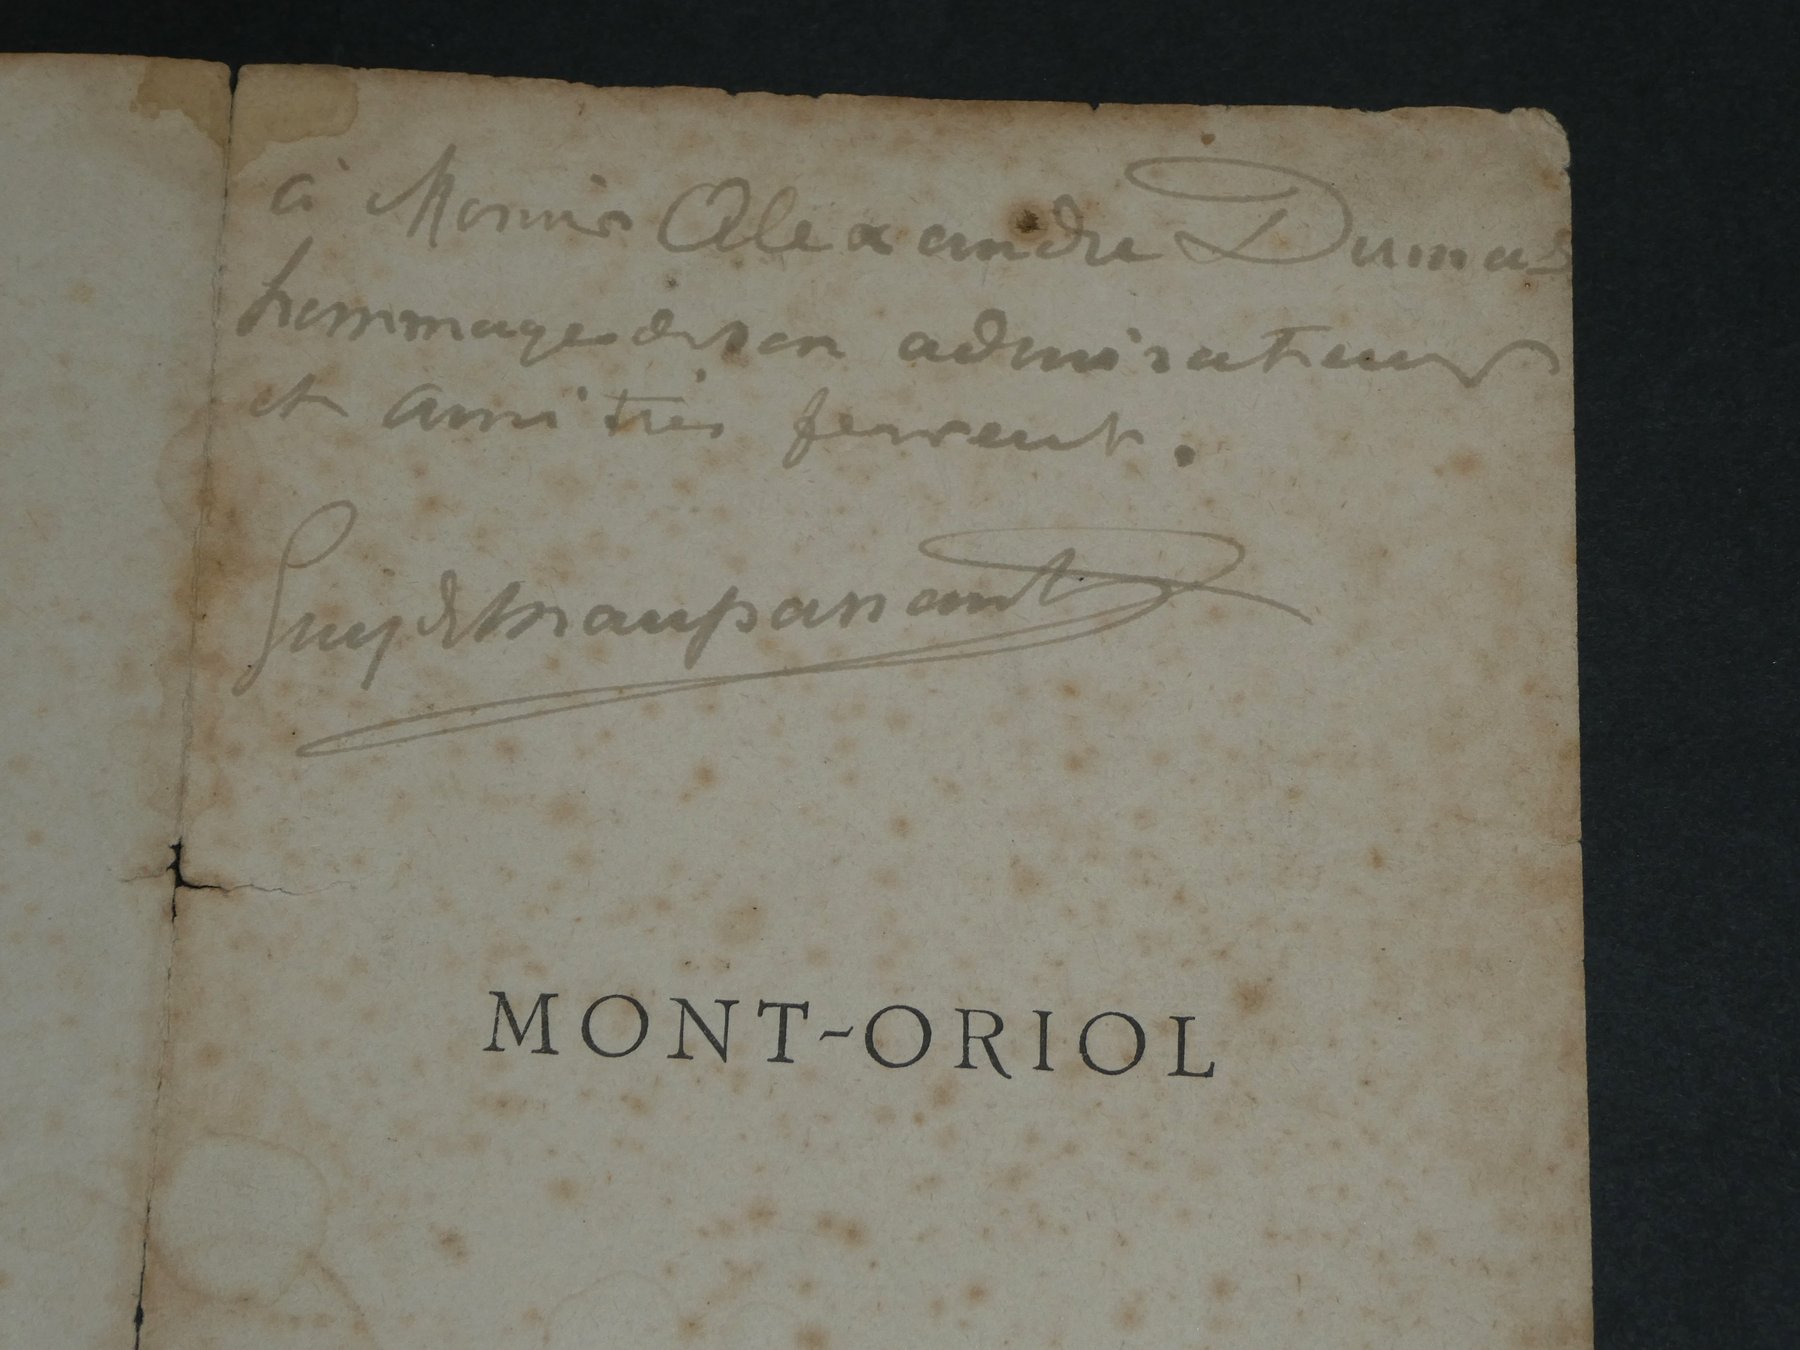 à Monsieur Alexandre Dumas
hommage de son admirateur
et ami très fervent.
Guy de Maupassant
MONT-ORIOL